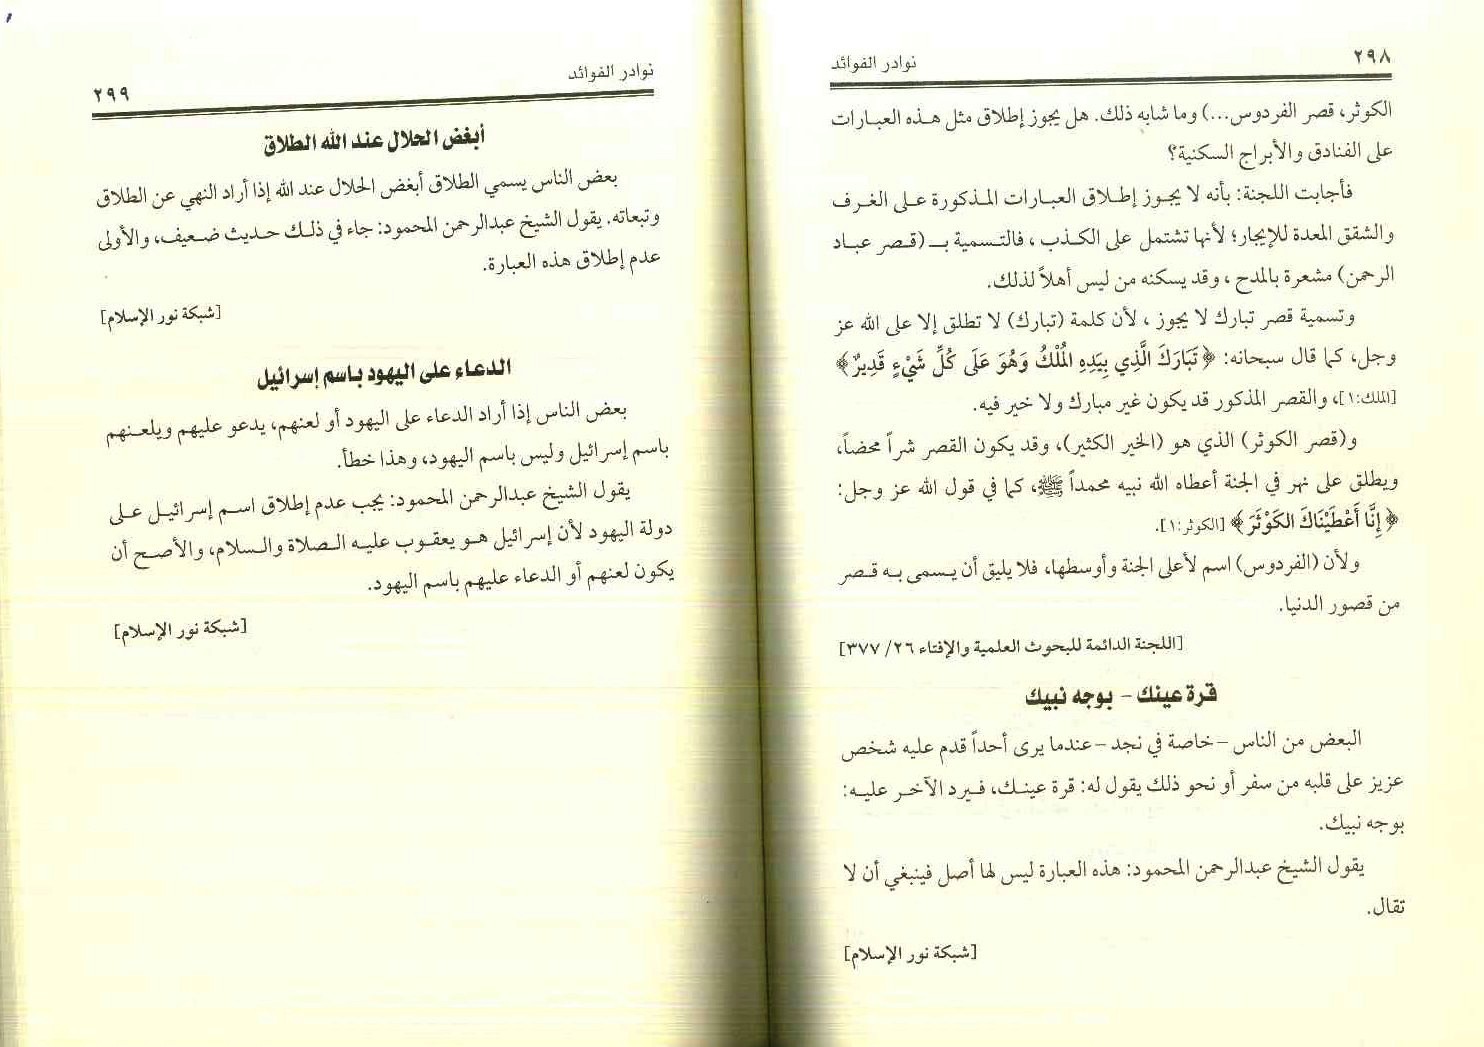 ٢٩٨
نوادر الفوائد
الكوثر، قصر الفردوس...) وما شابه ذلك. هل يجوز إطلاق مثل هذه العبارات
على الفنادق والأبراج السكنية؟
فأجابت اللجنة: بأنه لا يجوز إطلاق العبارات المذكورة على الغرف
والشقق المعدة للإيجار؛ لأنها تشتمل على الكذب، فالتسمية بـ (قصر عباد
الرحمن) مشعرة بالمدح، وقد يسكنه من ليس أهلاً لذلك.
وتسمية قصر تبارك لا يجوز، لأن كلمة (تبارك) لا تطلق إلا على الله عز
وجل، كما قال سبحانه: ﴿تَبَارَكَ الَّذِي بِيَدِهِ المُلْكُ وَهُوَ عَلَى كُلِّ شَيْءٍ قَدِيرٌ﴾
[الملك:١]، والقصر المذكور قد يكون غير مبارك ولا خير فيه.
و(قصر الكوثر) الذي هو (الخير الكثير)، وقد يكون القصر شراً محضاً،
ويطلق على نهر في الجنة أعطاه الله نبيه محمداً ﷺ، كما في قول الله عز وجل:
﴿إِنَّا أَعْطَيْنَاكَ الكَوْثَرَ﴾ [الكوثر:١].
ولأن (الفردوس) اسم لأعلى الجنة وأوسطها، فلا يليق أن يسمى به قصر
من قصور الدنيا.
[اللجنة الدائمة للبحوث العلمية والإفتاء ٢٦/ ٣٧٧]
قرة عينك – بوجه نبيك
البعض من الناس –خاصة في نجد –عندما يرى أحداً قدم عليه شخص
عزيز على قلبه من سفر أو نحو ذلك يقول له: قرة عينك، فيرد الآخر عليه:
بوجه نبيك.
يقول الشيخ عبدالرحمن المحمود: هذه العبارة ليس لها أصل فينبغي أن لا
تقال.
[شبكة نور الإسلام]
نوادر الفوائد
٢٩٩
أبغض الحلال عند الله الطلاق
بعض الناس يسمي الطلاق أبغض الحلال عند الله إذا أراد النهي عن الطلاق
وتبعاته. يقول الشيخ عبدالرحمن المحمود: جاء في ذلك حديث ضعيف، والأولى
عدم إطلاق هذه العبارة.
[شبكة نور الإسلام]
الدعاء على اليهود باسم إسرائيل
بعض الناس إذا أراد الدعاء على اليهود أو لعنهم، يدعو عليهم ويلعنهم
باسم إسرائيل وليس باسم اليهود، وهذا خطأ.
يقول الشيخ عبدالرحمن المحمود: يجب عدم إطلاق اسم إسرائيل على
دولة اليهود لأن إسرائيل هو يعقوب عليه الصلاة والسلام، والأصح أن
يكون لعنهم أو الدعاء عليهم باسم اليهود.
[شبكة نور الإسلام]